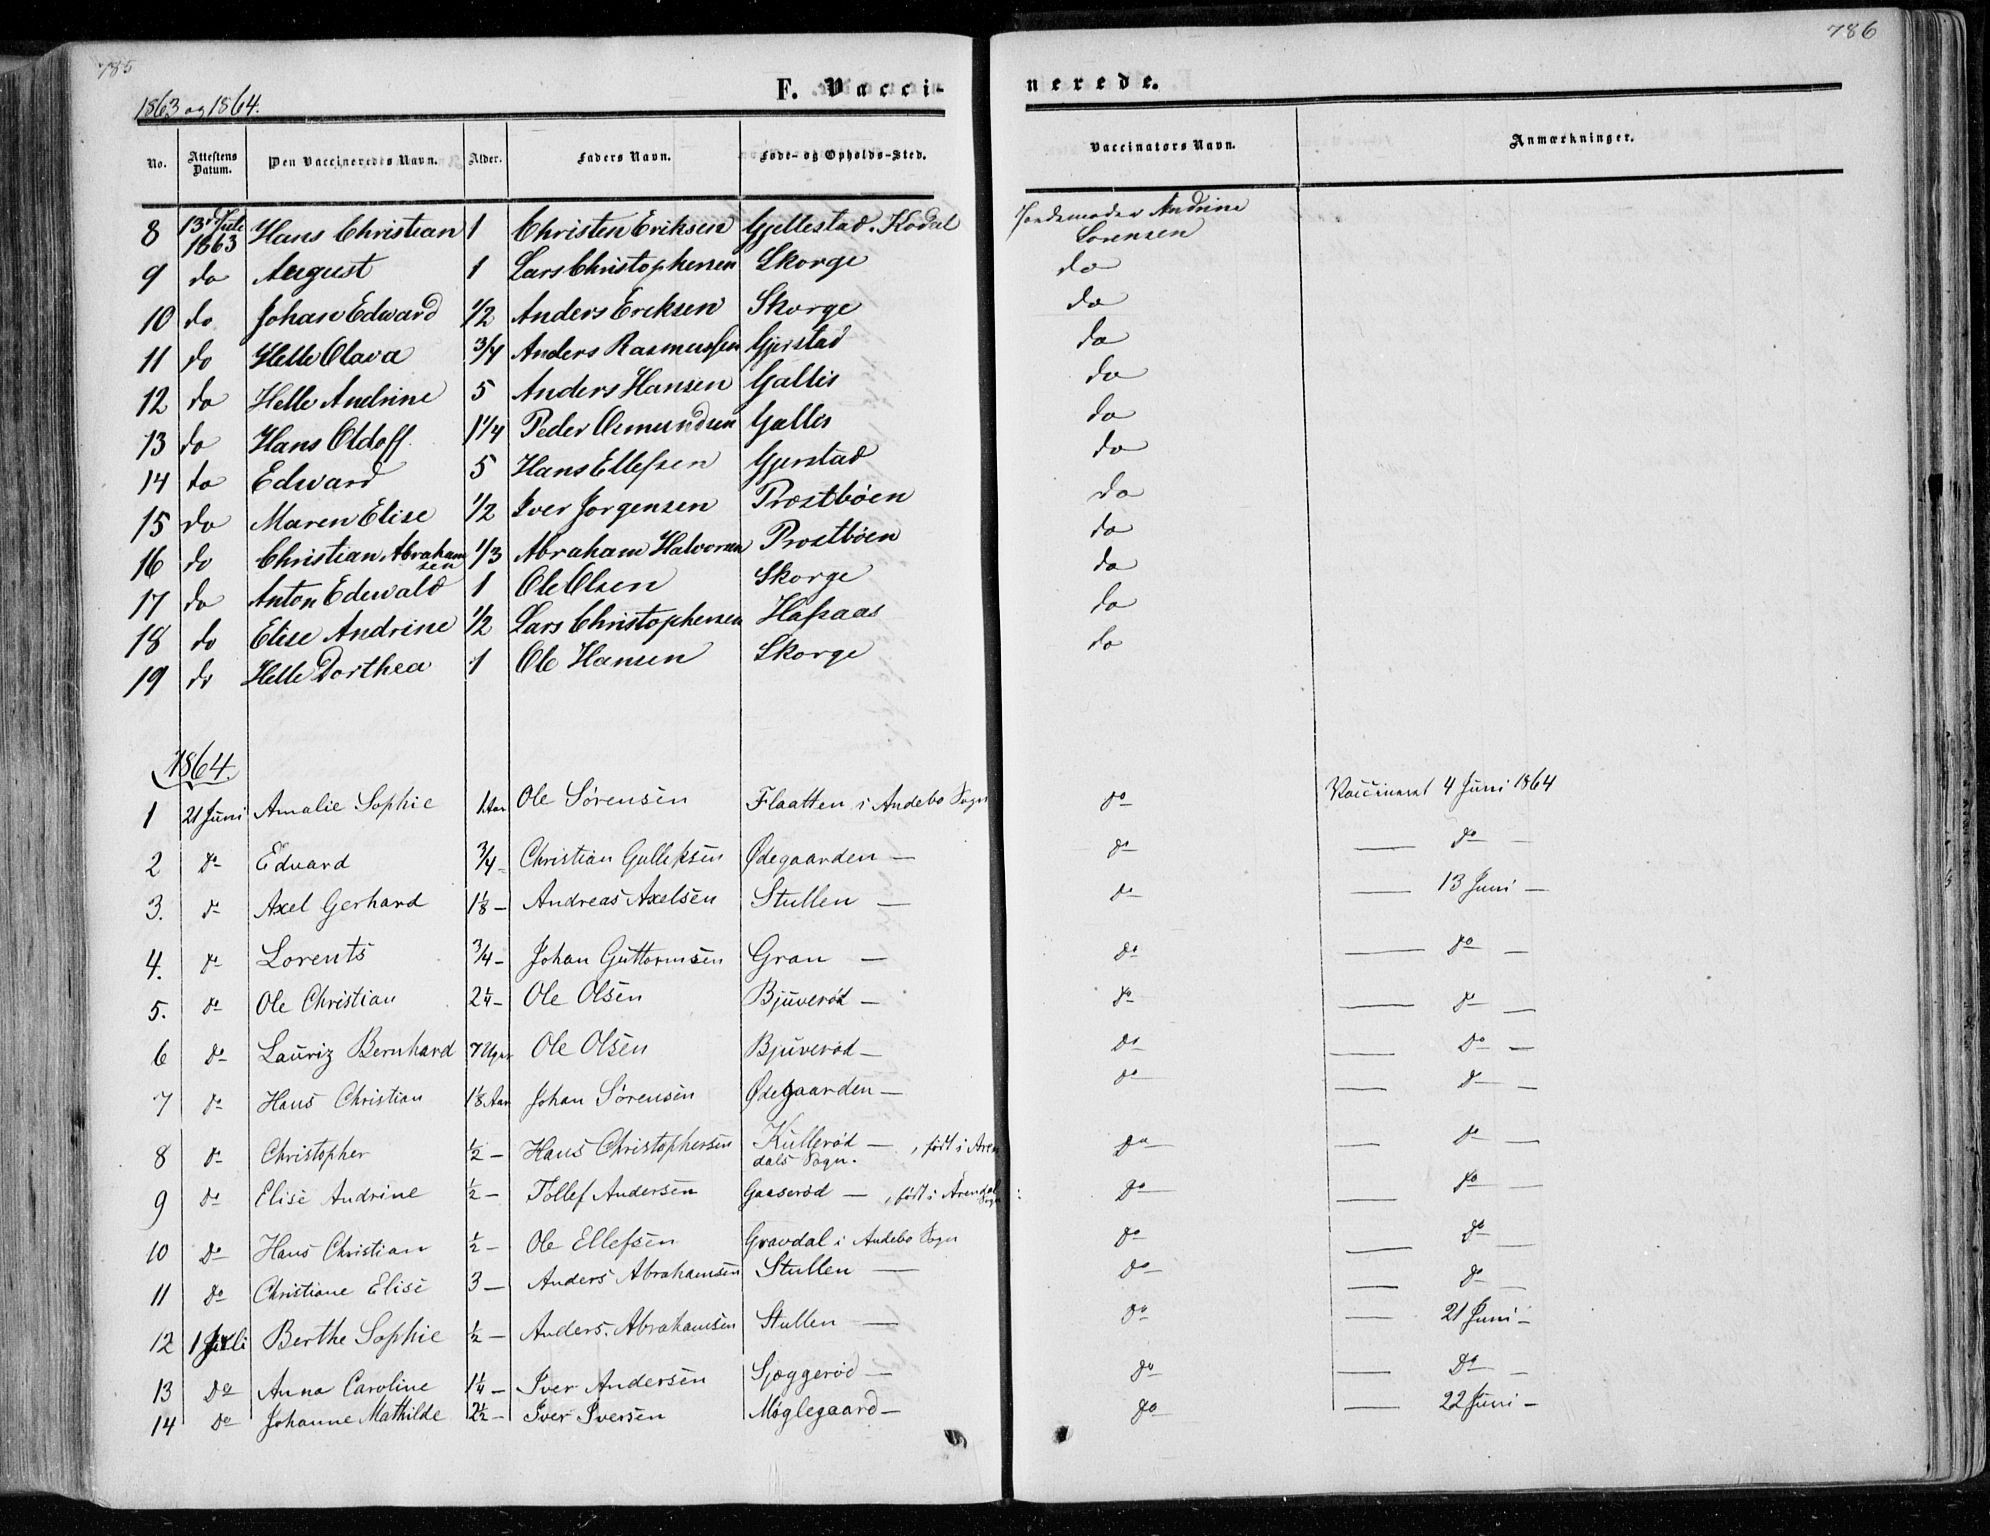 785
786
1863 og 1864.
F. Vacci-
nerede.
No. Attestens Datum. Den Vaccineredes Navn. Alder. Faders Navn. Føde- og Opholds-Sted. Vaccinatørs Navn. Anmærkninger.
8 13de Juli 1863 Hans Christian 1 Christen Eriksen Gjellestad. Kodal Jordemoder Andrine Sorensen
9 do August 1 Lars Christophersen Skorge do
10 do Johan Edward 1/2 Anders Ericksen Skorge do
11 do Helle Olava 3/4 Anders Rasmussen Gjerstad do
12 do Helle Andrine 5 Anders Hansen Gallis do
13 do Hans Oldoff 1 1/4 Peder Osmundsen Gallis do
14 do Edward 5 Hans Ellefsen Gjerstad do
15 do Maren Elise 1/2 Iver Jorgensen Prostbøen do
16 do Christian Abrahamsen 1/3 Abraham Halvorsen Prostbøen do
17 do Anton Edewald 1 Ole Olsen Skorge do
18 do Elise Andrine 1/2 Lars Christophersen Hafsaas do
19 do Helle Dorthea 1 Ole Hansen Skorge do
1864.
1 21 Juni Amalie Sophie 1 Aar Ole Sørensen Flaatten i Andebo Sogn do Vaccineret 4 Juni 1864
2 do Edvard 3/4 - Christian Gullefsen Ødegaarden — do — do —
3. do Axel Gerhard 1 1/8 - Andreas Axelsen Stullen — do — 13 Juni —
4. do Lorents 3/4 - Johan Guttormsen Gran — do — do —
5. do Ole Christian 2 1/4 - Ole Olsen Bjuverød — do — do —
6 do Lauriz Bernhard 7 Uger Ole Olsen Bjuverød — do — do —
7 do Hans Christian 1 1/8 Aar Johan Sørensen Ødegaarden — do — do —
8 do Christopher 1/2 - Hans Christophersen Kullerød — , født i Aren
dals Sogn. do — do —
9 do Elise Andrine 1/2 - Tollef Andersen Gaaserød — , født i Arendal Sogn do — do —
10 do Hans Christian 1/2 - Ole Ellefsen Gravdal i Andebo Sogn do — do —
11 do Christiane Elise 3 — Anders Abrahamsen Stullen — do — do —
12 1 Juli Berthe Sophie 1/2 - Anders. Abrahamsen Stullen — do — 21 Juni —
13 do Anna Caroline 1 1/4 - Iver Andersen Sjæggerød — do — do —
14 do Johanne Mathilde 2 1/2 - Iver Iversen Møglegaard — do — 22 Juni —